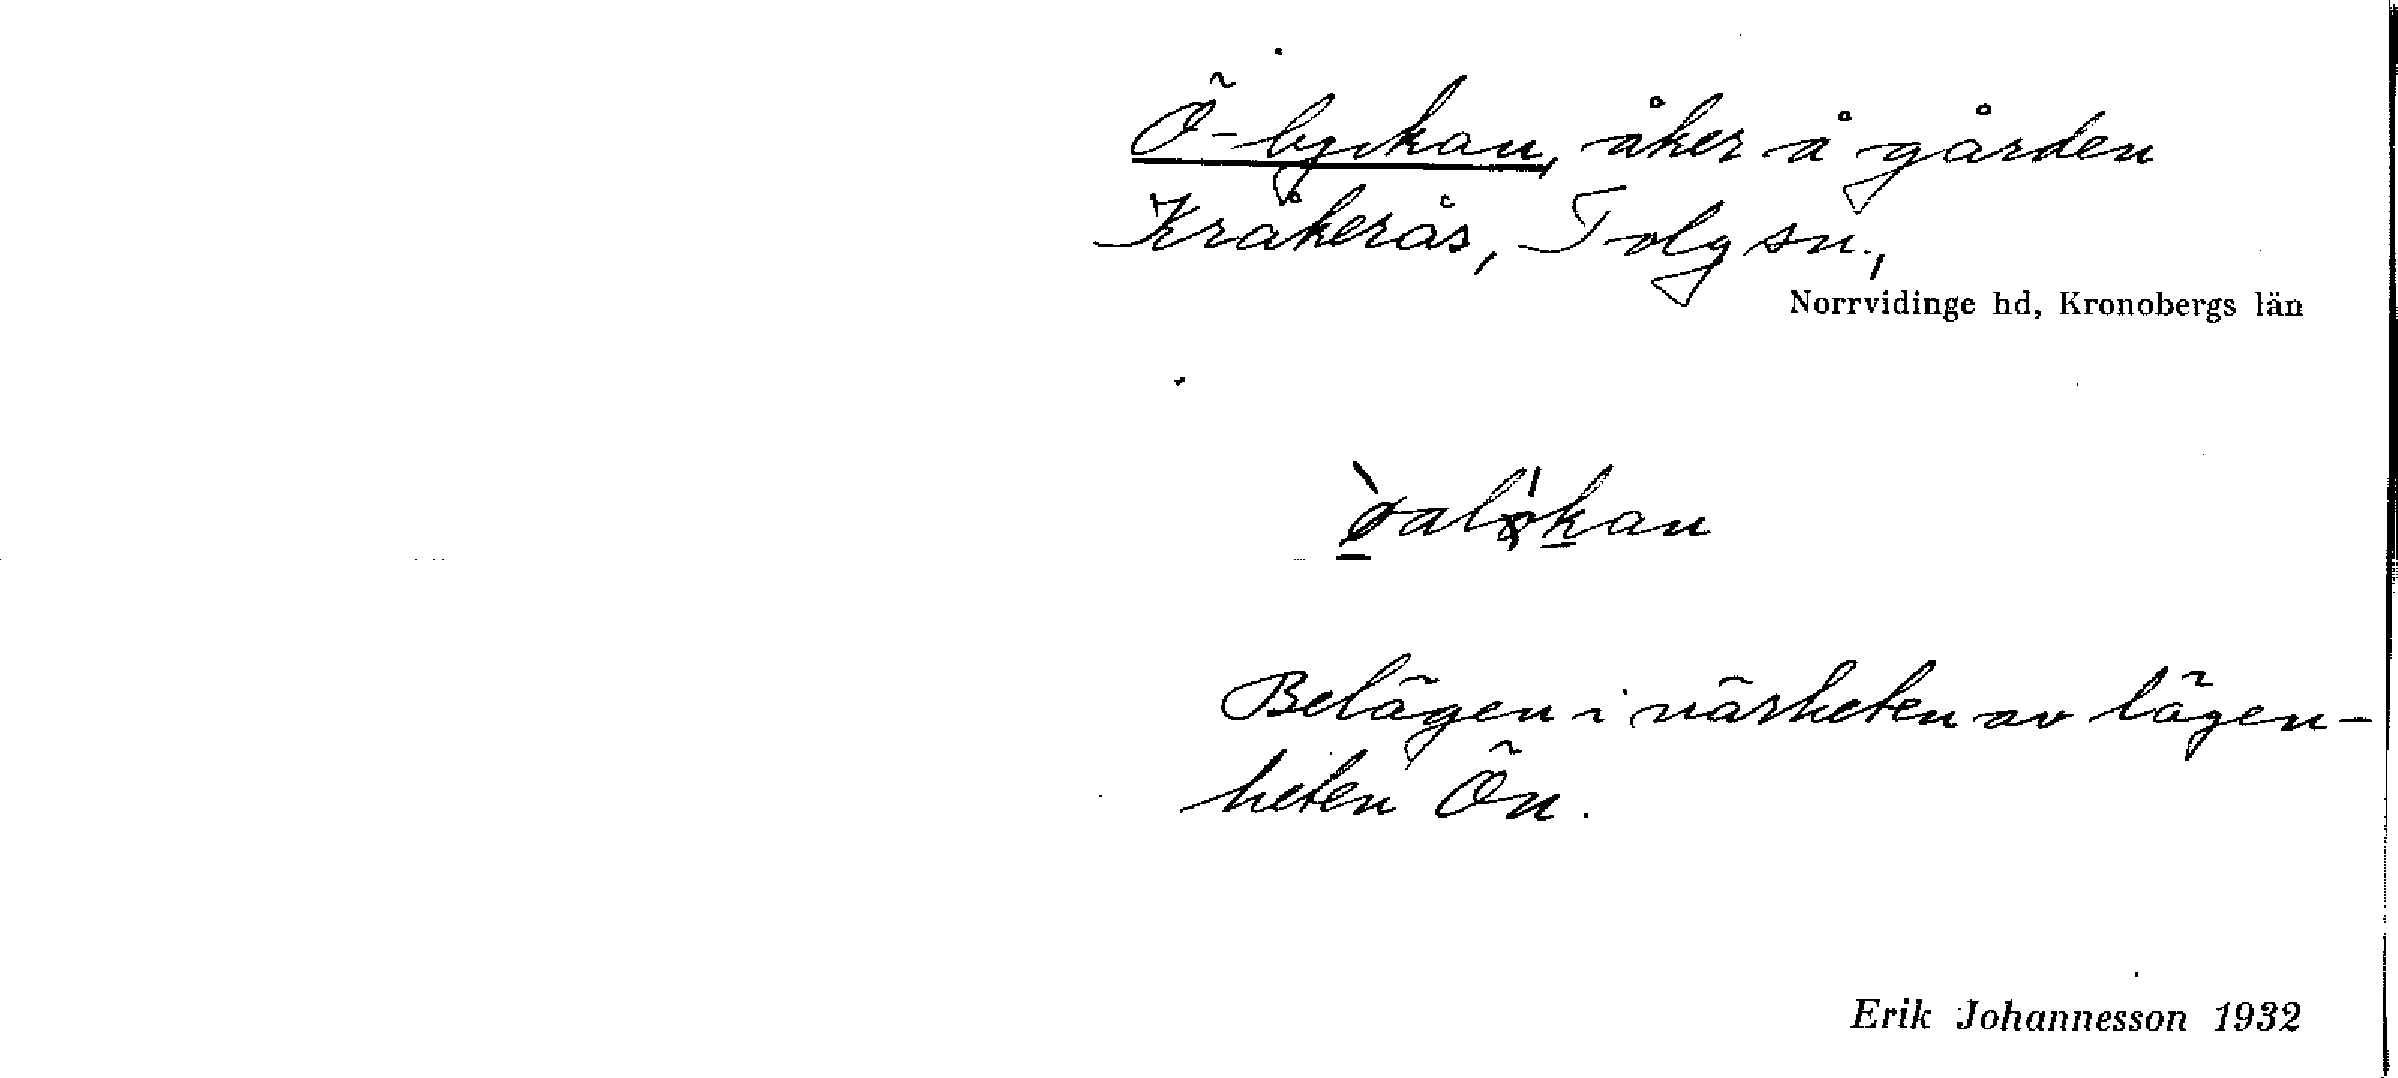 Ö-lyckan, åker å gården
Kråkerås, Tolg sn.,
Norrvidinge hd, Kronobergs län
Belägen i närheten av lägen-
heten Ön.
Erik Johannesson 1932